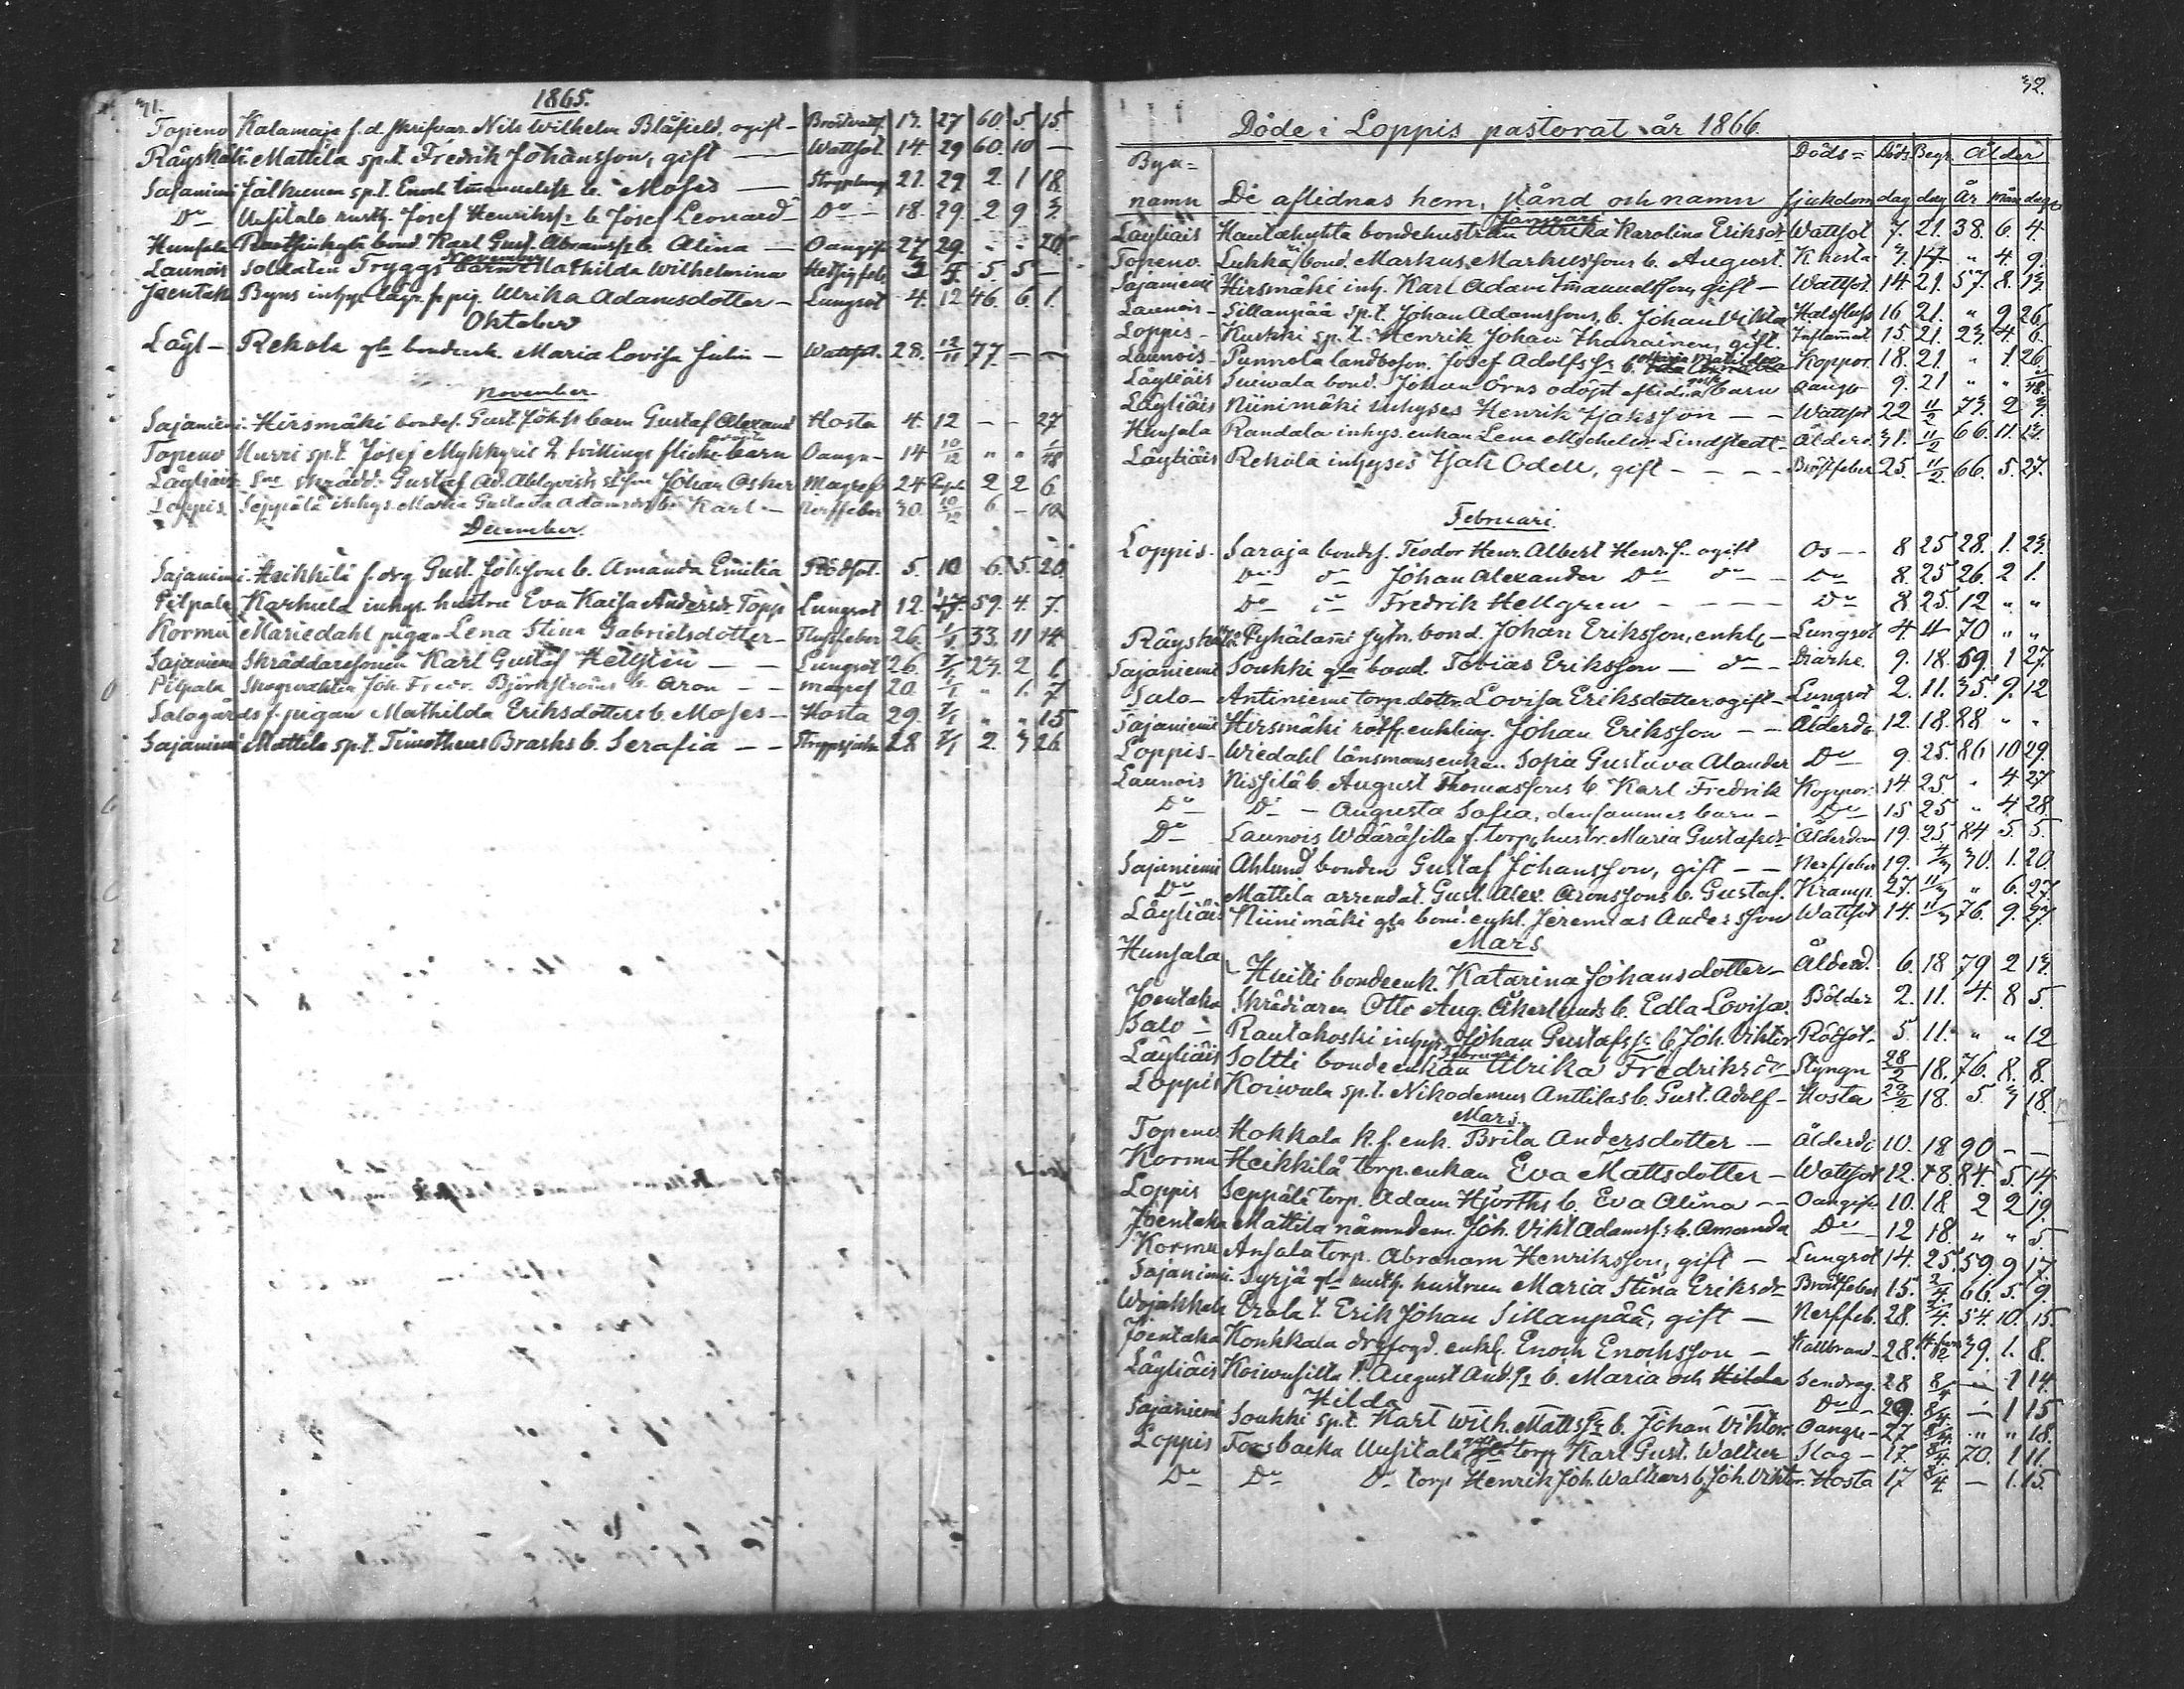 31.
1865.
Topeno Kalamaja f.d. skrifvar. Nils Wilhelm Blåfield, ogift - 13. 27 60. 5. 15.
Räyskälä Mattila sp.t. Fredrik Johansson, gift — Wattsot. 14. 29 60. 10 —
Sajaniemi sp.t. Enoch Immanuelss. b. Moses — 21. 29. 2. 1 18.
Do Uusitalo rusth. Josef Henrikss. b. Josef Leonard - Do - 18. 29. 2 9 3.
Hunsala bond. Karl Gust. Abramss. b. Alina — Oangif. 27 29. " " 20.
November
Launois Soldaten Tryggs barn Mathilda Wilhelmina 5 5 —
Joentaka Byns inhys Ulrika Adamsdotter - Lungsot 4. 12 46. 6. 1.
Oktober
Läyl - Rekola gla bondeenk. Maria Lovisa Julin - Wattsot. 28. 12/11 77 — —
November.
Sajaniemi. Hirsmäki bondes. Gust. Johss barn Gustaf Alexand Hosta 4. 12 — — 27
Topeno Murri sp.t. Josef Mykkyris 2 tvillings flicke barn Oangn - 14 10/12 " " 1/48
Läyliäis skrädd. Gustaf Ad. Ahlqvists Johan Oskar Magref 24 2 2 6
Loppis. Seppälä inhys. Maria Gustava Adamsdrs b. Karl - Nerffeber 30. 10/12 6 — 10
December.
Sajaniemi. Heikkilä f. drg Gust. Johssons b. Amanda Emilia Rödsot. 5. 10 6. 5. 20.
Pilpala Karhula inhys. hustru Eva Kaisa Andersdr Topp Lungsot 12. 17. 59. 4. 7.
Kormu Mariedahl pigan Lena Stina Gabrielsdotter - Flussfeber 26. 1/1 33. 11 14
Sajaniemi Skräddaresonen Karl Gustaf Hellsten — — Lungsot 26. 7/1 23. 2 1.
Pilpala Skogvaktin Joh. Fredr. Björkströms b. Aron — — magref 20. " 1. 7
Salogårds f. pigan Mathilda Eriksdotters b. Moses — Hosta 29. 7/1 " " 15
Sajaniemi Mattila sp.t. Timotheus Brasks b. Serafia — — Strypsjuka 28 7/1 2. 3 26.
32.
Döde i Loppis pastorat år 1866.
Bya= Döds= Döds Begr. Ålder
namn De aflidnas hem, stånd och namn sjukdom dag dag År mån dagar
Januari
Läyliäis Hautakylta bondehustrun Ulrika Karolina Eriksdr Wattsot 7. 21. 38. 6. 4.
Topeno. Lukka bond. Markus Markussons b. August. Khosta 3. 14 " 4 9.
Sajaniemi Hirsmäki inh. Karl Adam Immanuelsson, gift — Wattsot. 14 21. 57. 8. 13.
Launois - Sillanpää sp.t. Johan Adamssons, b. Johan Viktor Halsfluss 16 21. " 9 26.
Loppis - Kuskki sp.t. Henrik Johan Ihanainen, gift. Inflammat 15. 21. 23. 4. 6.
Launois - Punnola landboson. Josef Adolfss b. Maria Matilda Koppor. 18. 21. " 1. 26.
Läyliäis Suiwala bond. Johan Örns odöpt aflidna barn Oangb 9. 21 " " 1/48.
Läyliäis Niinimäki inhyses Henrik Isaksson — — Wattsot 22 11/2 73. 2 3.
Hunsala Randala inhys. enkan Lena Michelsdr Lindstedt - Ålderd. 31. 11/2 66. 11. 13.
Läyliäis Rekola inhyses Isak Odell, gift - - - Bröstfeber 25. 11/2. 66. 5. 27.
Februari.
Loppis - Saraja bondes. Teodor Henr. Albert Henr. s. ogift Os — 8 25 28. 1. 23.
Do do Johan Alexander Do do — Do 8. 25. 26. 2 1.
Do do Fredrik Hellgren - - - Do 8. 25. 12 " "
Räyskälä Pyhälami sytn. bond. Johan Eriksson, enkl. - Lungsot 4. 11 70 " "
Sajaniemi Soukki gla bond. Tobias Eriksson — do - Diarhe. 9. 18. 69. 1 27.
Salo - Antiniemi torp. dottr. Lovisa Eriksdotter, ogift - Lungsot 2. 11. 35. 9. 12
Sajaniemi Hirsmäki rotf. enkling. Johan Eriksson — Ålderd. 12. 18. 88 " "
Loppis - Wiedahl länsmansenkan Sofia Gustava Alander Do 9. 25. 86 10 29.
Launois Nissilä b. August Thomassons b. Karl Fredrik Koppor. 14. 25. " 4 27
Do Do - Augusta Sofia, densammes barn - Do 15 25 " 4 28.
Do Launois f. torp. hustr. Maria Gustafsdr Ålderdom 19. 25 84 5. 5.
Sajaniemi Ahlund bonden Gustaf Johansson, gift — Nerffeber 19. 4/3 30. 1. 20.
Do Mattila arrendat. Gust. Alex. Aronssons b. Gustaf. Kramp. 27. 11/3 " 6. 27.
Läyliäis Niinimäki gla bond. enkl. Jeremias Andersson Wattsot 14. 11/3 76. 9. 27.
Mars
Hunsala Huiti bondeenk. Katarina Johansdotter - Ålderd. 6. 18 79 2 13.
Joentaka Skrädaren Otto Aug. Åkerlunds b. Edla Lovisa. Bölder 2. 11. 4. 8 5.
Salo - Rautakoski inhys. Johan Gustafss b. Joh. Viktor Rödsot - 5. 11. " " 12
Februari
Läyliäis Soltti bondeenkan Ulrika Fredriksdr Styngn 28/2 18. 76. 8. 8.
Loppis Koiwula sp.t. Nikodemus Anttilas b. Gust. Adolf - Hosta 28/2 18. 5. 3 18.
Mars.
Topeno Hokkala k.f. enk. Brita Andersdotter — Ålderd. 10. 18 90 — —
Kormu Heikkilä torp. enkan Eva Mattsdotter - Wattsot 12. 18. 84. 5. 14.
Loppis Seppälä torp. Adam Hjorths b. Eva Alina — Oangif. 10. 18 2 2 19.
Joentaka Mattila nämndem. Joh. Vikt. Adamss. b. Amanda Do - 12 18. " " 5.
Kormu Ansala torp. Abraham Henriksson, gift — Lungsot 14. 25. 59. 9 17.
Sajaniemi. Syrjä gla rusth. hustrun Maria Stina Eriksdr Bröstfeber 15. 2/4. 66. 5 9.
Wojakkala Erola t. Erik Johan Sillanpää, gift — Nerffeb. 28. 54. 10. 15
Joentaka Konkkala drgfogd. enkl. Enoch Enochsson - Kallbrand 28. 39. 1. 8.
Läyliäis Koiwusilta t. August And.s b. Maria och Hilda Sendrag. 28 8/4 — 1 14.
Hilda Do - 29. 8/4 — 1 15
Sajaniemi Soukki sp.t. Karl Wilh. Mattss b. Johan Viktor. Oangn - 27 8/4 " " 18.
Loppis Forsbacka Uusitalo torp. Karl Gust. Walter Slag - 17. 8/4. 70. 1 11.
Do Do Do torp Henrik Joh. Walters b. Joh. Viktor. Hosta 17 8/4. — 1. 15.